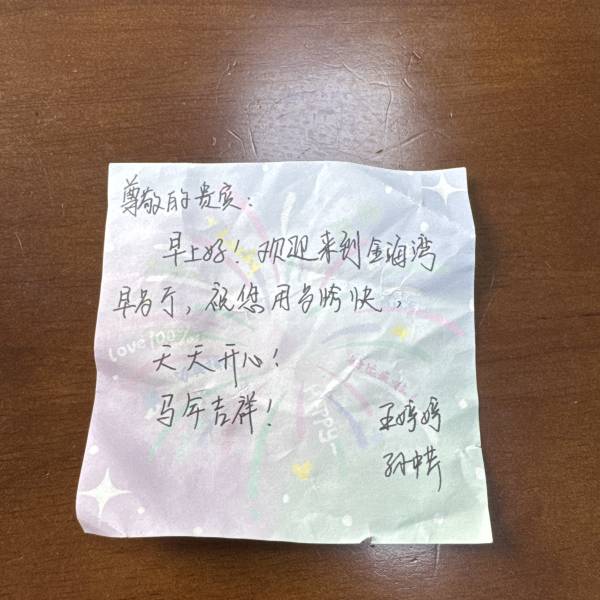 尊敬的贵宾：
早上好！欢迎来到金海湾
早歺厅，祝您用歺愉快，
天天开心！
马年吉祥！
王婷婷
Love
happy~